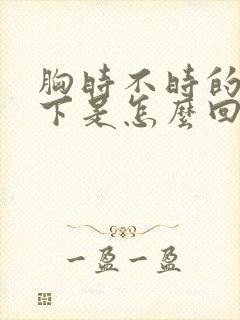 胸时不时的
下是怎麼回
一盈一盈